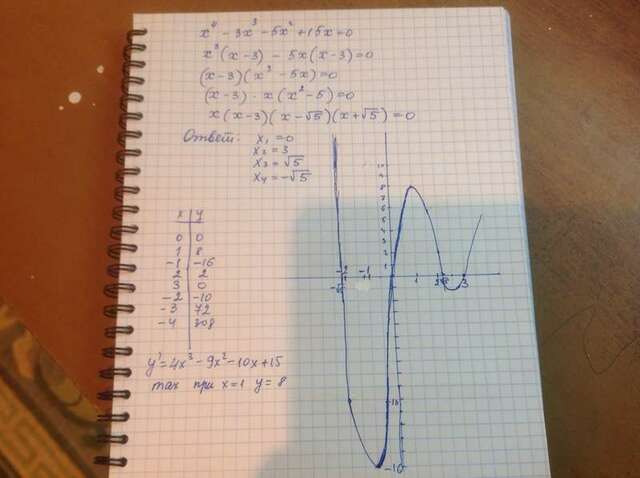 x⁴ - 3x³ - 5x² + 15x = 0
x³(x-3) - 5x(x-3) = 0
(x-3)(x³ - 5x) = 0
(x-3)·x(x²-5) = 0
x(x-3)(x-√5)(x+√5) = 0
Ответ: x₁ = 0
x₂ = 3
x₃ = √5
x₄ = -√5
x y
0 0
1 8
-1 -16
2 2
3 0
-2 -10
-3 72
-4 308
y' = 4x³ - 9x² - 10x + 15
max при x=1 y=8
8
-2 -1 1 2 3